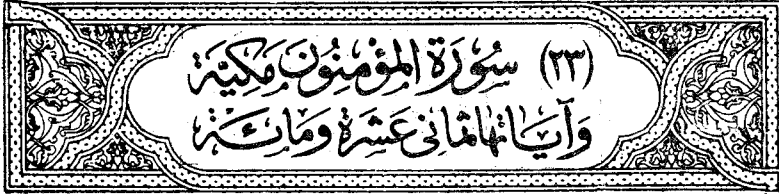 (٢٣) سُورَةُ المؤْمِنُونَ مَكِيَّة
وَآيَاتُهَا ثَمَانِي عَشَرَةَ وَمَائَة